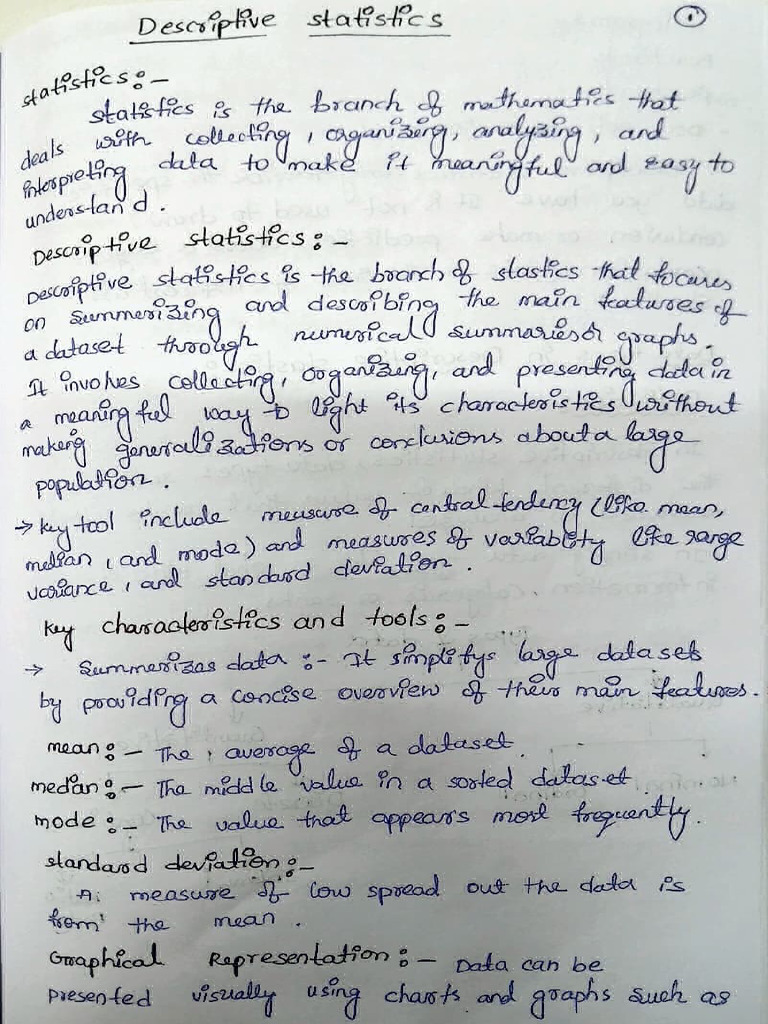 Descriptive statistics
1
statistics:-
statistics is the branch of mathematics that
deals with collecting, organizing, analyzing, and
interpreting data to make it meaningful and easy to
understand.
Descriptive statistics:-
Descriptive statistics is the branch of stastics that focuses
on summerizing and describing the main features of
a dataset through numerical summaries or graphs.
It involves collecting, organizing, and presenting data in
a meaningful way to light its characteristics without
making generalizations or conclusions about a large
population.
→ key tool include measure of central tendency (like mean,
median, and mode) and measures of variablity like range
variance, and standard deviation.
key characteristics and tools:-
→ Summerizas data :- It simplifys large datasets
by providing a concise overview of their main features.
mean:- The, average of a dataset.
median:- The middle value in a sorted dataset.
mode:- The value that appears most frequently.
standard deviation:-
A: measure of low spread out the data is
from the mean.
Graphical Representation:- Data can be
presented visually using charts and graphs such as